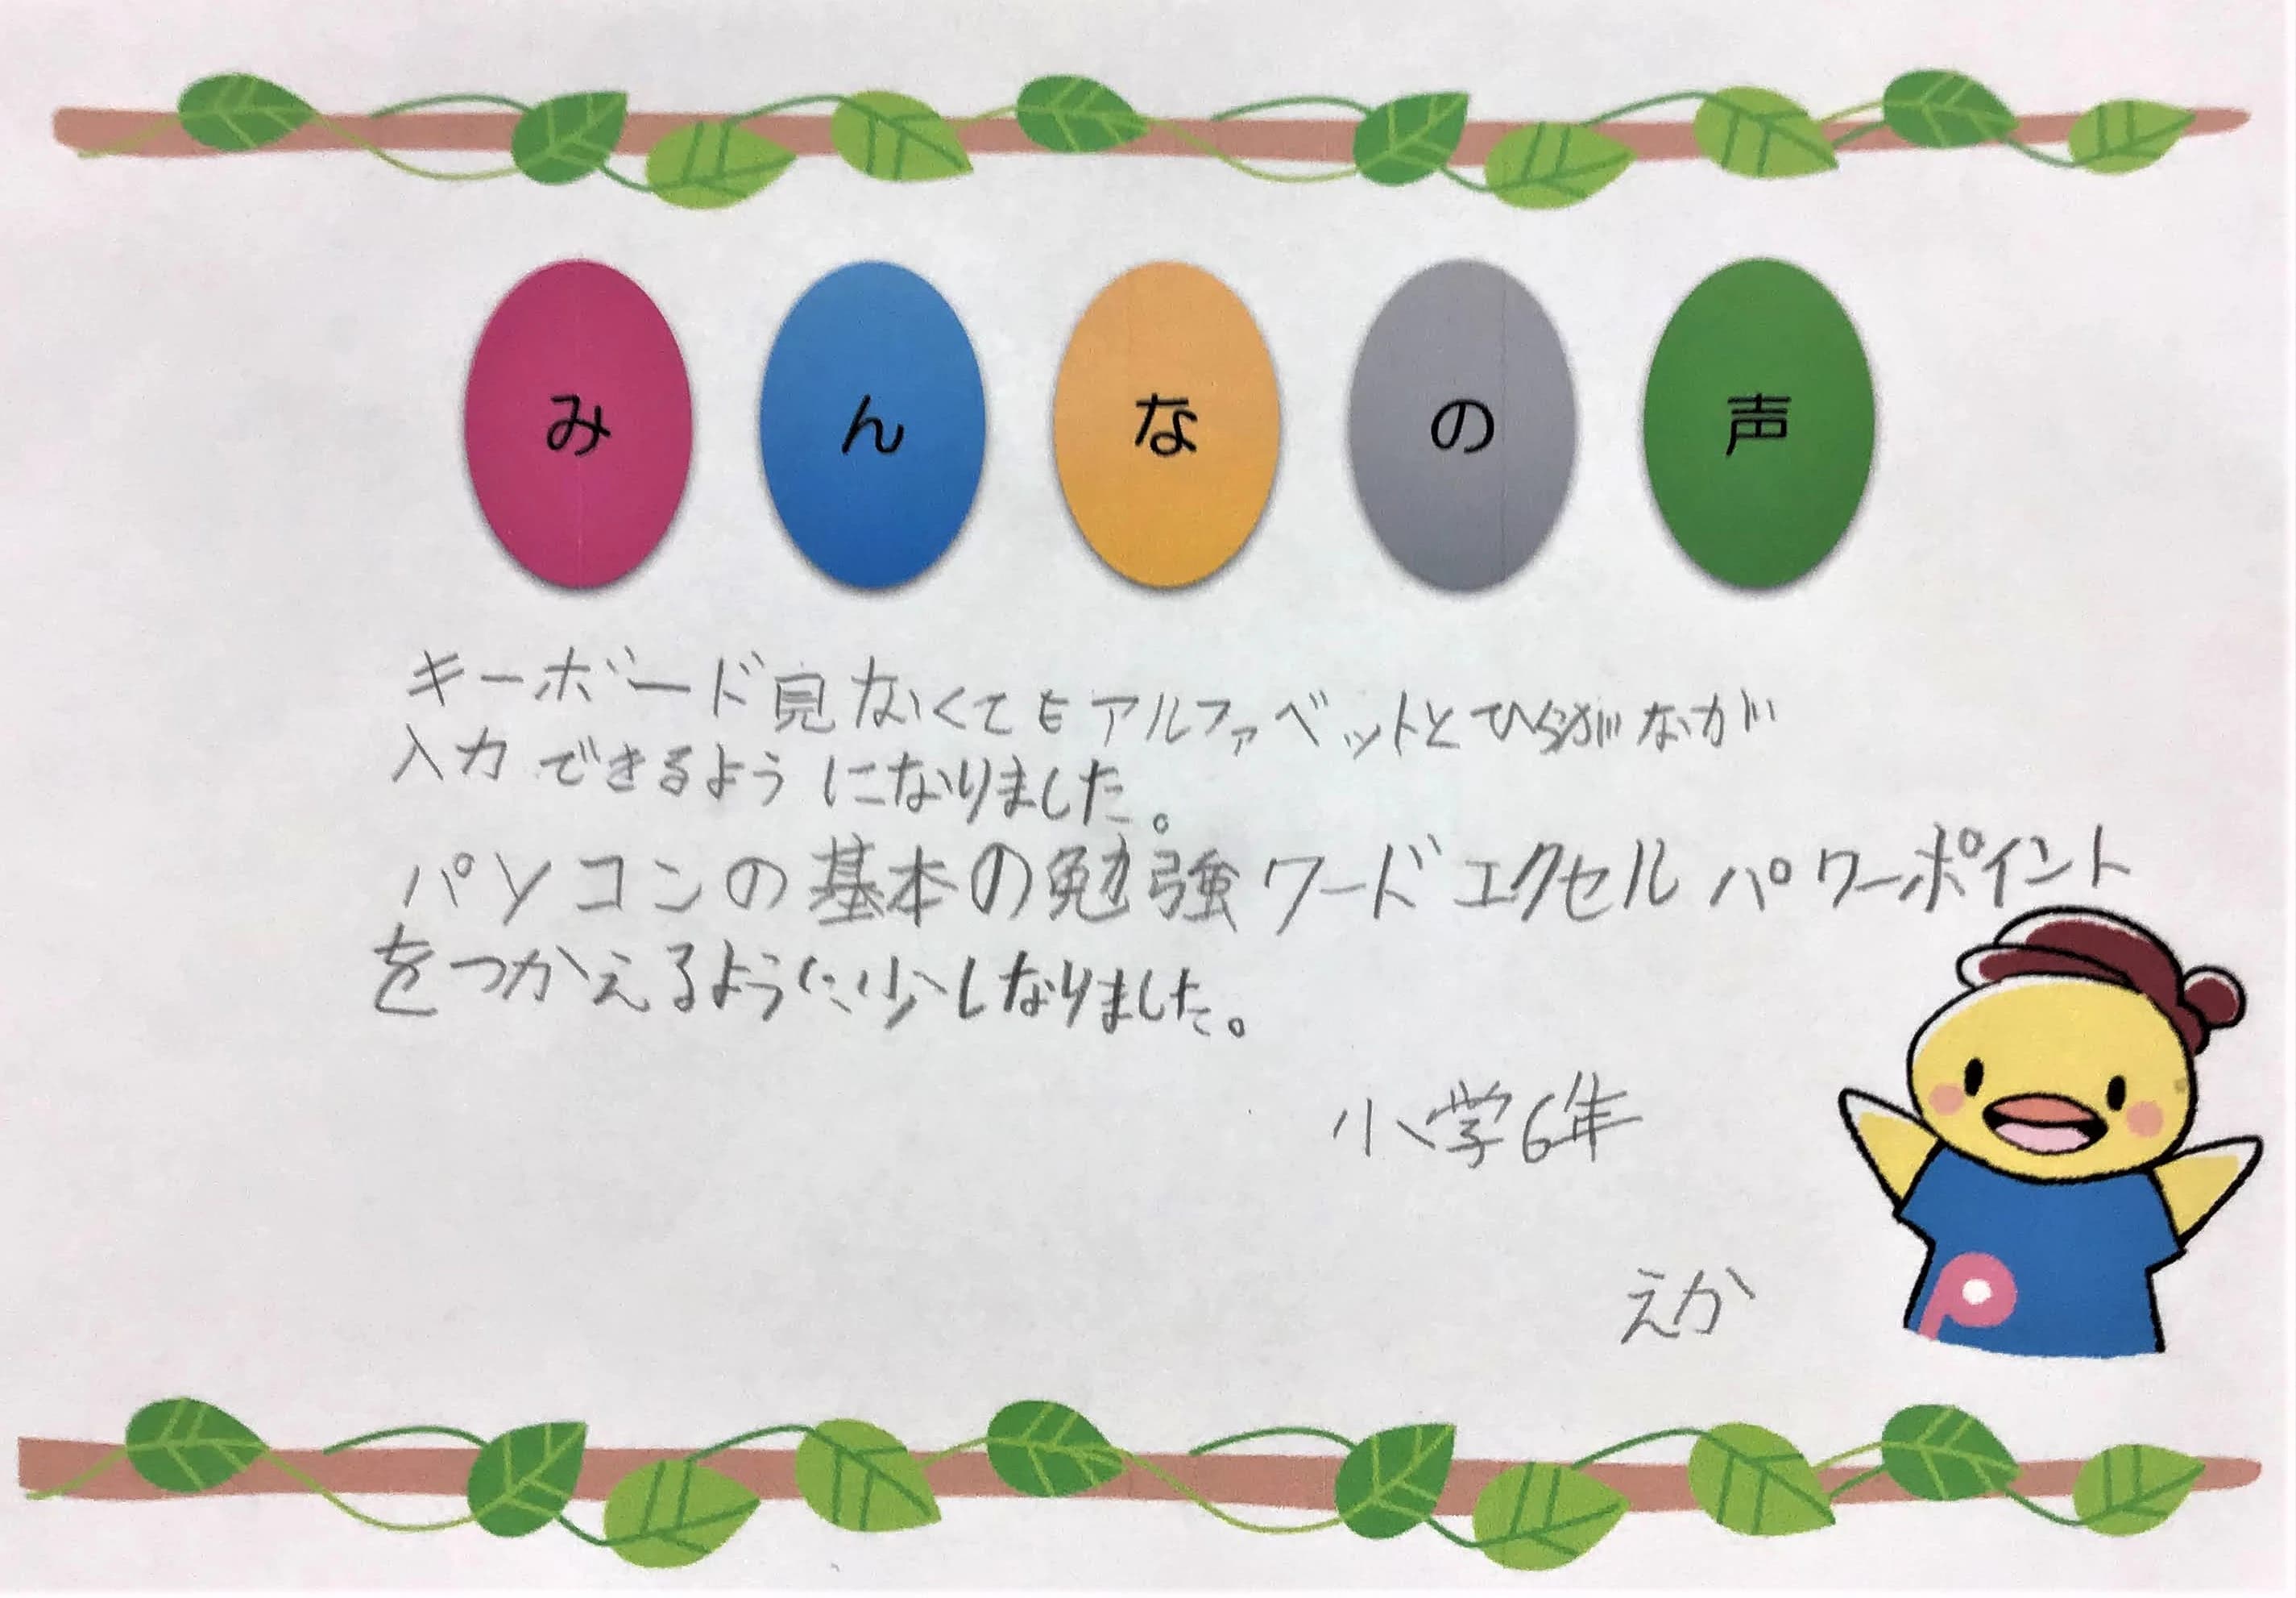 みんなの声
キーボード見なくてもアルファベットとひらがなが
入力できるようになりました。
パソコンの基本の勉強ワードエクセルパワーポイント
をつかえるように少しなりました。
小学6年
えか